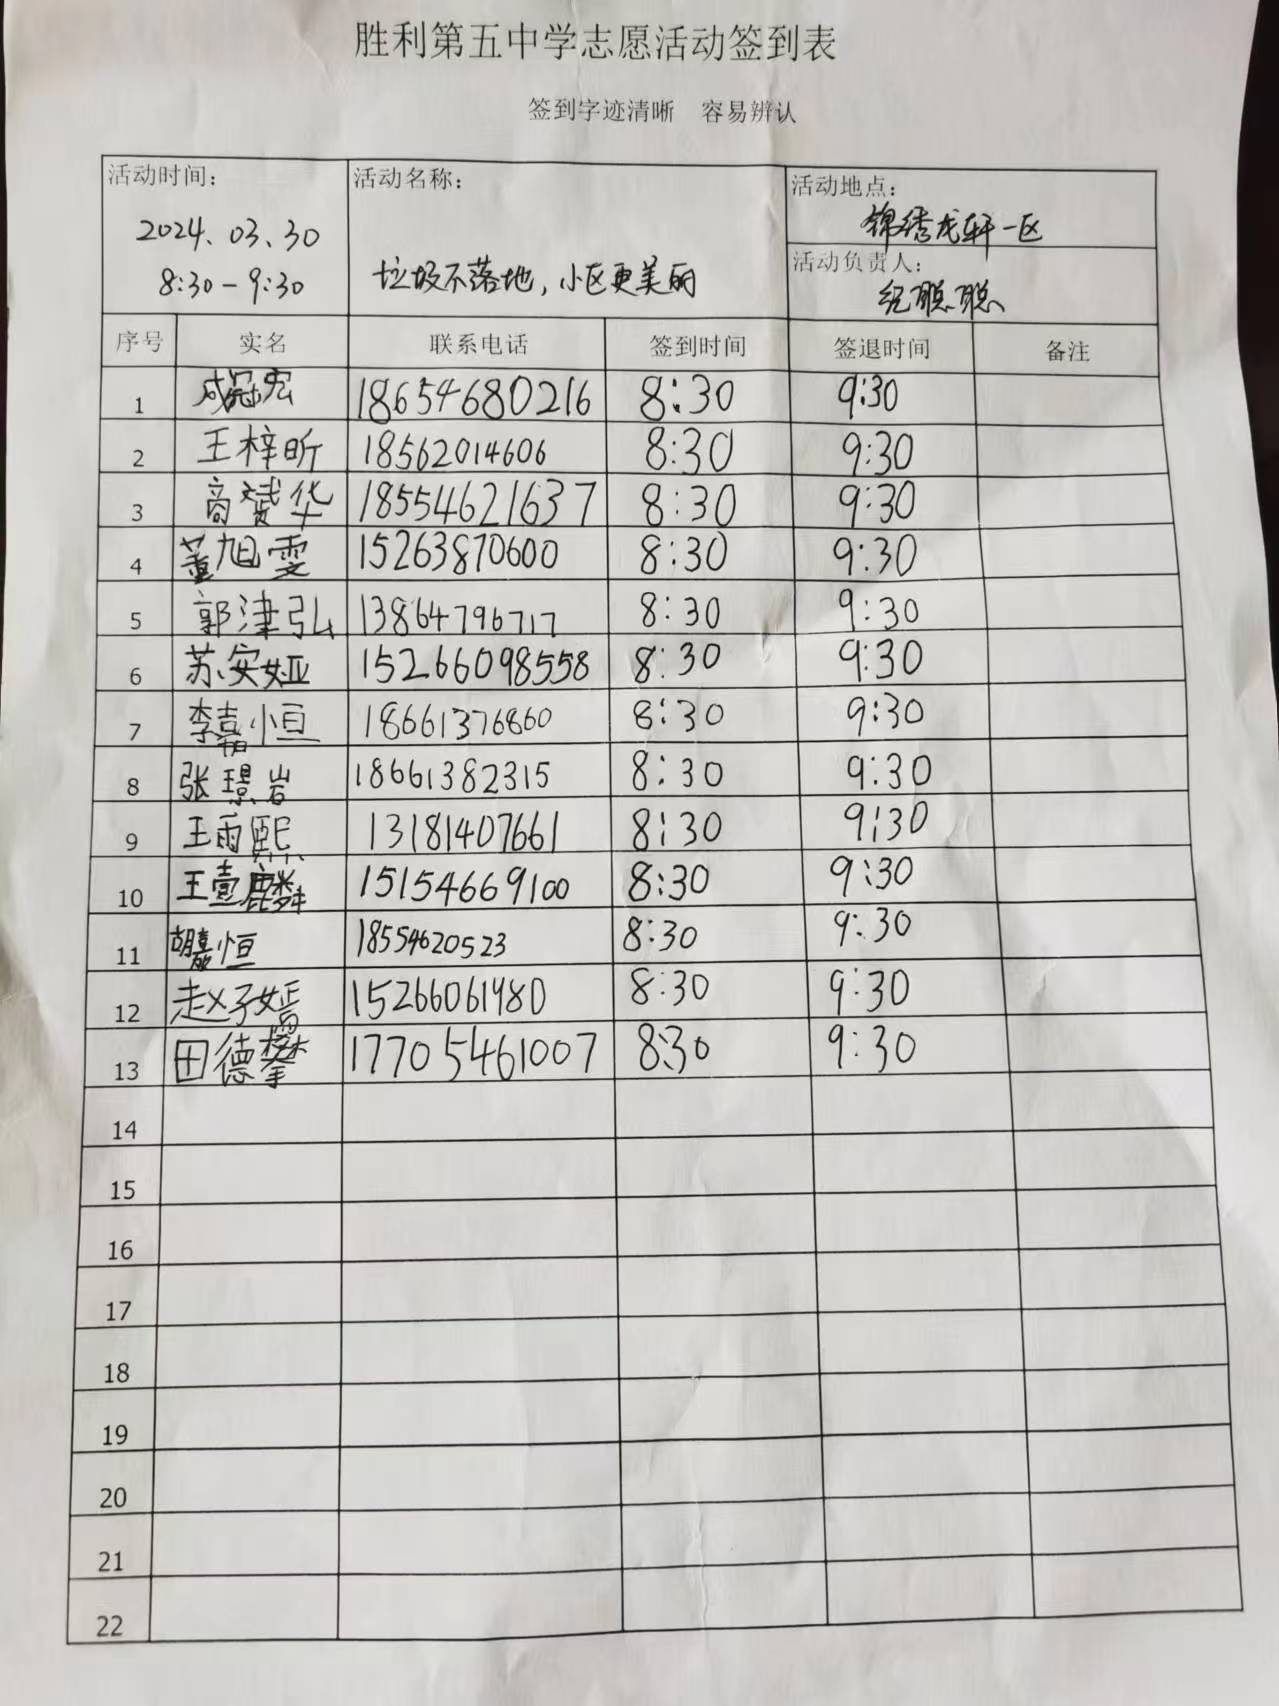 胜利第五中学志愿活动签到表
签到字迹清晰 容易辨认
活动时间： 活动名称： 活动地点：
2024.03.30 锦绣龙轩一区
8:30-9:30 垃圾不落地，小区更美丽 活动负责人：
纪聪聪
序号 实名 联系电话 签到时间 签退时间 备注
1 成冠宏 18654680216 8:30 9:30
2 王梓昕 18562014606 8:30 9:30
3 商赟华 18554621637 8:30 9:30
4 董旭雯 15263870600 8:30 9:30
5 郭津弘 13864796717 8:30 9:30
6 苏安娅 15266098558 8:30 9:30
7 李嘉恒 18661376860 8:30 9:30
8 张璟岩 18661382315 8:30 9:30
9 王雨熙 13181407661 8:30 9:30
10 王壹麟 15154669100 8:30 9:30
11 胡嘉恒 18554620523 8:30 9:30
12 赵子嫣 15266061980 8:30 9:30
13 田德攀 17705461007 8:30 9:30
14
15
16
17
18
19
20
21
22